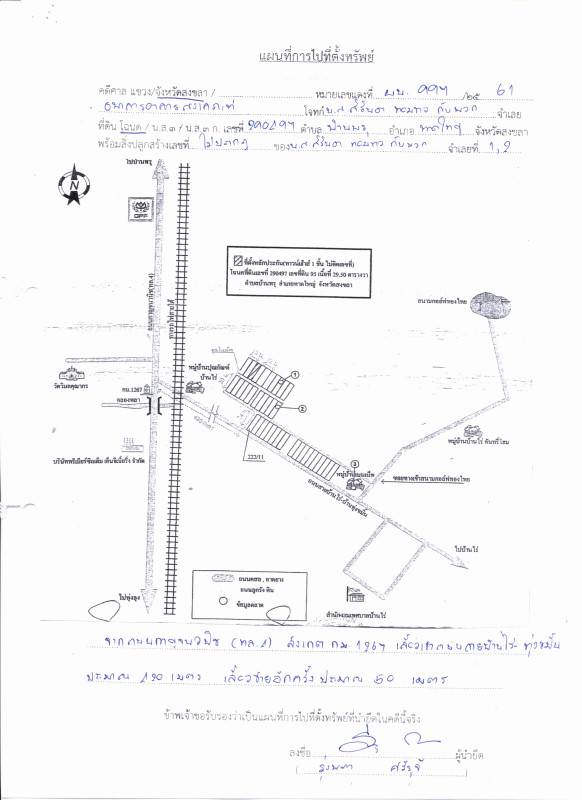 แผนที่การไปที่ตั้งทรัพย์
คดีศาล แขวง/จังหวัดสงขลา / หมายเลขแดงที่ ผบ. 997 /๒๕ 61
ธนาคารอาคารสงเคราะห์ โจทก์ น.ส. สิรินดา กับพวก จำเลย
ที่ดิน โฉนด / น.ส.๓ / น.ส.๓ ก. เลขที่ 290497 ตำบล บ้านพรุ อำเภอ หาดใหญ่ จังหวัดสงขลา
พร้อมสิ่งปลูกสร้างเลขที่ ไม่ปรากฏ ของ น.ส. สิรินดา กับพวก จำเลยที่ 1,2
ไปบ้านพรุ
GPF
ที่ตั้งหลักประกัน(ทาวน์เฮ้าส์ 1 ชั้น ไม่ติดเลขที่)
โฉนดที่ดินเลขที่ 290497 เลขที่ดิน 95 เนื้อที่ 29.50 ตารางวา
ตำบลบ้านพรุ อำเภอหาดใหญ่ จังหวัดสงขลา
ถนนกาญจนวนิช(ทล.4)
ทางรถไฟสายใต้
สนามกอล์ฟทองไทย
ซอยไม่มีชื่อ
หมู่บ้านปุณกัณฑ์
บ้านไร่
1
วัดโมคคุลาราม
กม.1267
คลองพลา
2
222/11
หมู่บ้านบ้านไร่ คันทรี่โฮม
บริษัทพรีเมียร์ซิสเต็ม เอ็นจิเนียริ่ง จำกัด
3
ซอยทางเข้าสนามกอล์ฟทองไทย
ถนนสายบ้านไร่-บ้านทุ่งขมิ้น
ไปบ้านไร่
ไปทุ่งลุง
ถนนคสล., ลาดยาง
ถนนลูกรัง ดิน
ข้อมูลตลาด
สำนักงานเทศบาลบ้านไร่
จากถนนกาญจนวนิช (ทล.4) สังเกต กม. 1267 เลี้ยวเข้าถนนสายบ้านไร่-ทุ่งขมิ้น
ประมาณ 420 เมตร เลี้ยวซ้ายอีกครั้ง ประมาณ 50 เมตร
ข้าพเจ้าขอรับรองว่าเป็นแผนที่การไปที่ตั้งทรัพย์ที่นำยึดในคดีนี้จริง
ลงชื่อ ผู้นำยึด